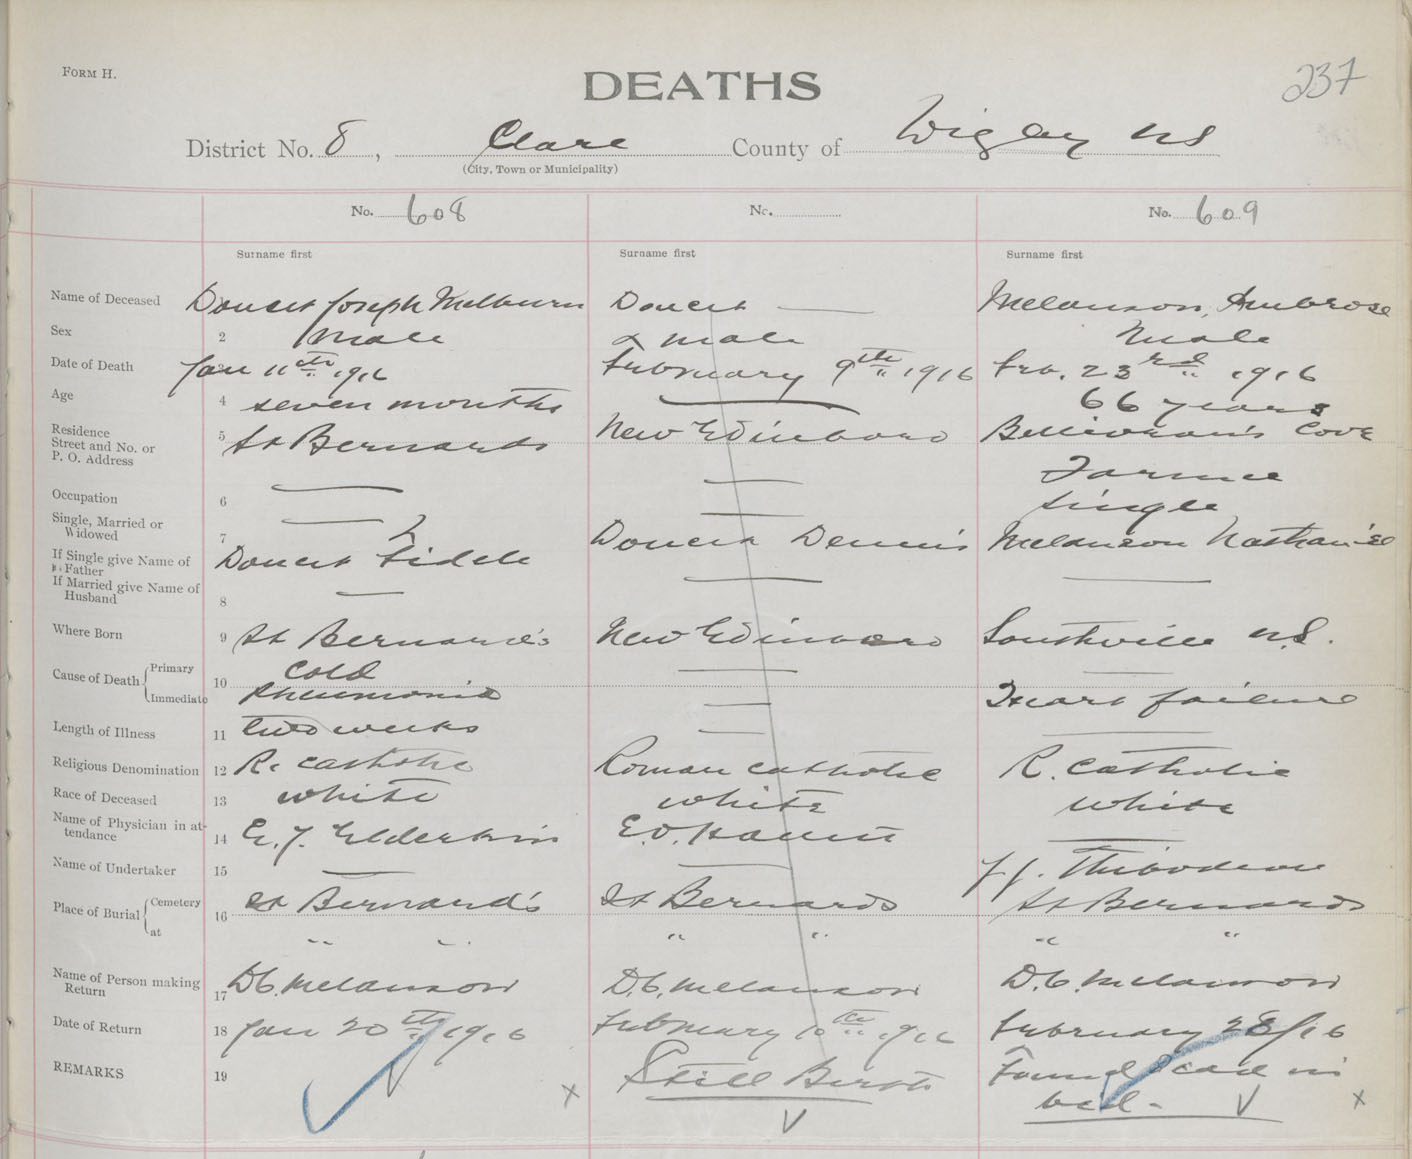 FORM H.
DEATHS
237
District No. 8, Clare County of Digby NS
(City, Town or Municipality)
No. 608 No. No. 609
Surname first Surname first Surname first
Name of Deceased Doucet Joseph Melburn Doucet — Melanson, Ambrose
Sex 2 male male Male
Date of Death Jan 11th 1916 February 9th 1916 Feb. 23rd 1916
Age 4 seven months — 66 years
Residence
Street and No. or
P. O. Address 5 St Bernards New Edinboro Belliveau's Cove
Occupation 6 — — Farmer
Single, Married or
Widowed 7 — — Single
If Single give Name of
Father Doucet Fidele Doucet Dennis Melanson Nathaniel
If Married give Name of
Husband 8 — — —
Where Born 9 St Bernard's New Edinboro Southville N.S.
Cause of Death { Primary 10 Cold — —
Immediate Pneumonia — Heart failure
Length of Illness 11 two weeks — —
Religious Denomination 12 R. Catholic Roman Catholic R. Catholic
Race of Deceased 13 white white white
Name of Physician in at-
tendance 14 E. J. Elderkin —
Name of Undertaker 15 — — Thibodeau
Place of Burial { Cemetery 16 St Bernard's St Bernards St Bernards
at " " " " " "
Name of Person making
Return 17 D.C. Melanson D.C. Melanson D.C. Melanson
Date of Return 18 Jan 20th 1916 February 10th 1916 February 28/16
REMARKS 19 Still Birth Found dead in
bed -
x x